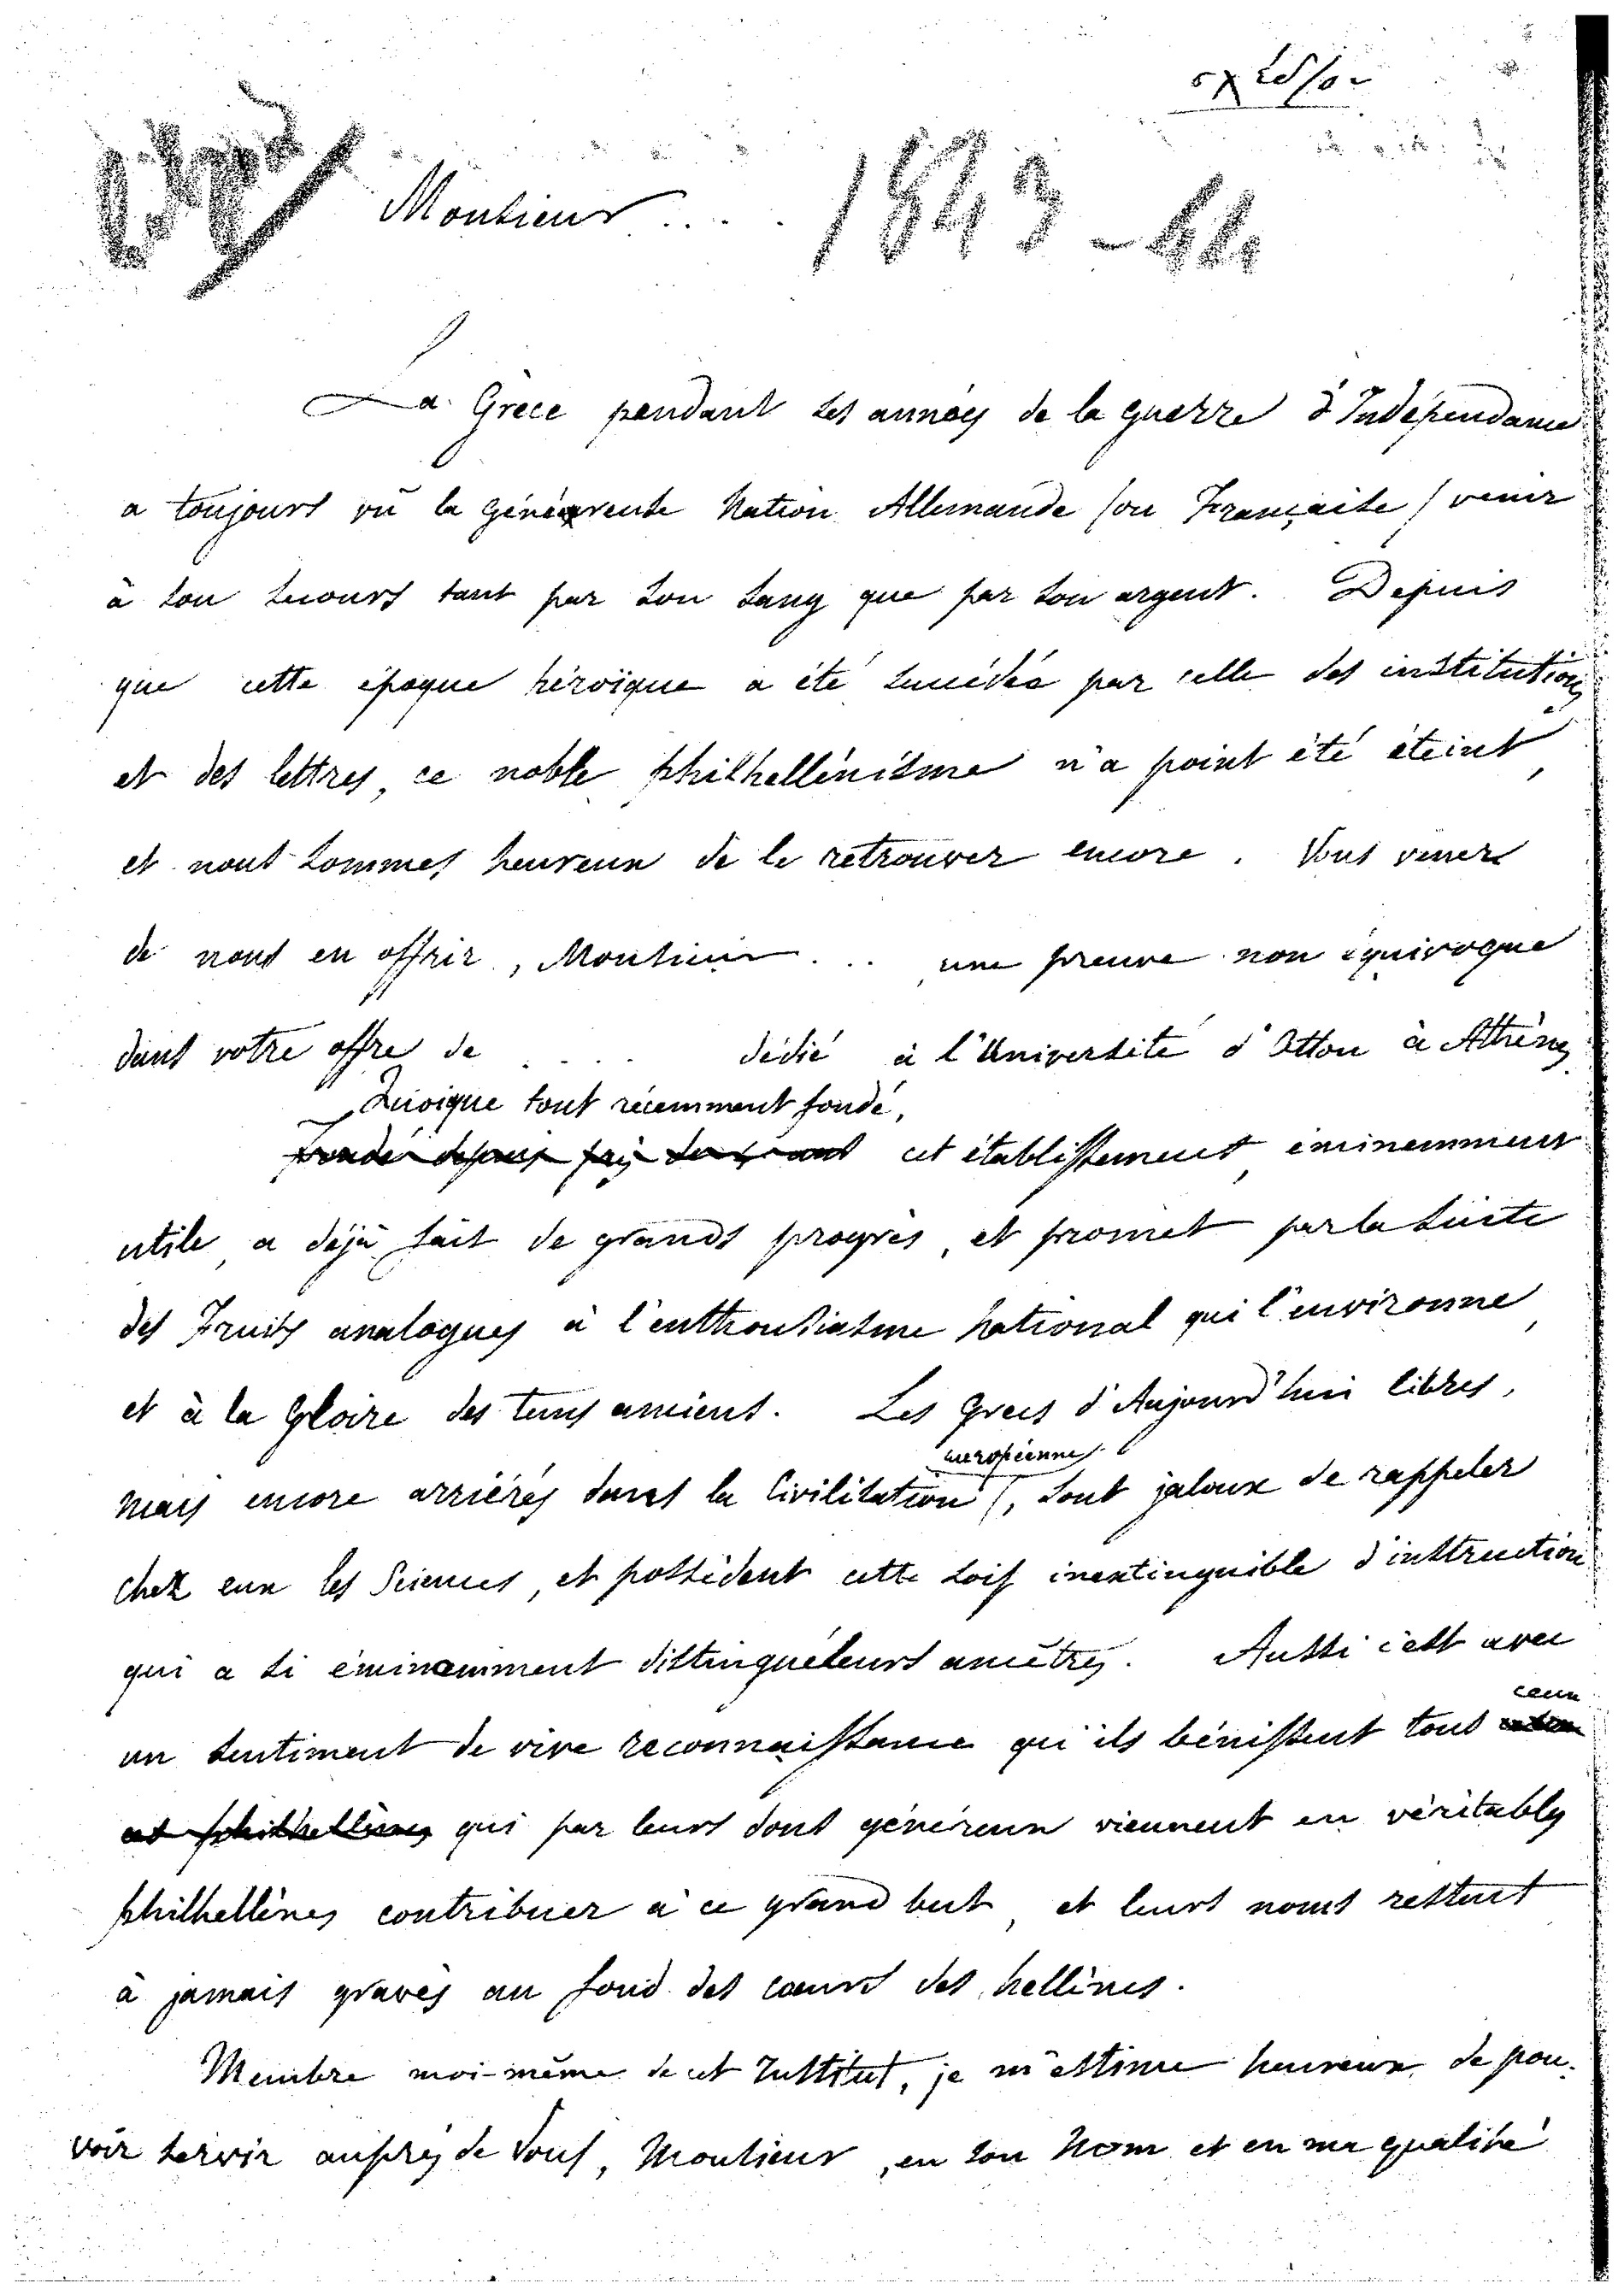 σχέδιον
Monsieur . . . . 1843-44
La Grèce pendant ses années de la guerre d'Indépendance
a toujours vû la généreuse Nation Allemande / ou Française / venir
à son secours tant par son sang que par son argent. Depuis
que cette époque héroïque a été succédée par celle des institutions
et des lettres, ce noble philhellénisme n'a point été éteint,
et nous sommes heureux de le retrouver encore. Vous venez
de nous en offrir, Monsieur . . . , une preuve non équivoque
dans votre offre de . . . . dédié à l'Université d'Otton à Athènes.
Quoique tout récemment fondé,
cet établissement, éminemment
utile, a déjà fait de grands progrès, et promet par la suite
des Fruits analogues à l'enthousiasme national qui l'environne,
et à la Gloire des tems anciens. Les Grecs d'Aujourd'hui libres,
européenne
mais encore arriérés dans la Civilisation, sont jaloux de rappeler
chez eux les Sciences, et possèdent cette soif inextinguible d'instruction
qui a si éminemment distingué leurs ancêtres. Aussi c'est avec
ceux
un sentiment de vive reconnaissance qu'ils bénissent tous
philhellènes qui par leurs dons généreux viennent en véritables
philhellènes contribuer à ce grand but, et leurs noms restent
à jamais gravés au fond des cœurs des hellènes.
Membre moi-même de cet Institut, je m'estime heureux de pou-
voir servir auprès de Vous, Monsieur, en son Nom et en ma qualité